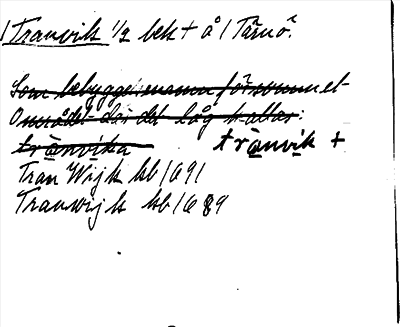 /Tranvik ½ bekt å /Tärnö.
Som bebyggelsenamn försvunnet
Området där det låg kallas:
tranvika tranvik +
Tran Wijk kb 1691
Tranwijk kb 1689